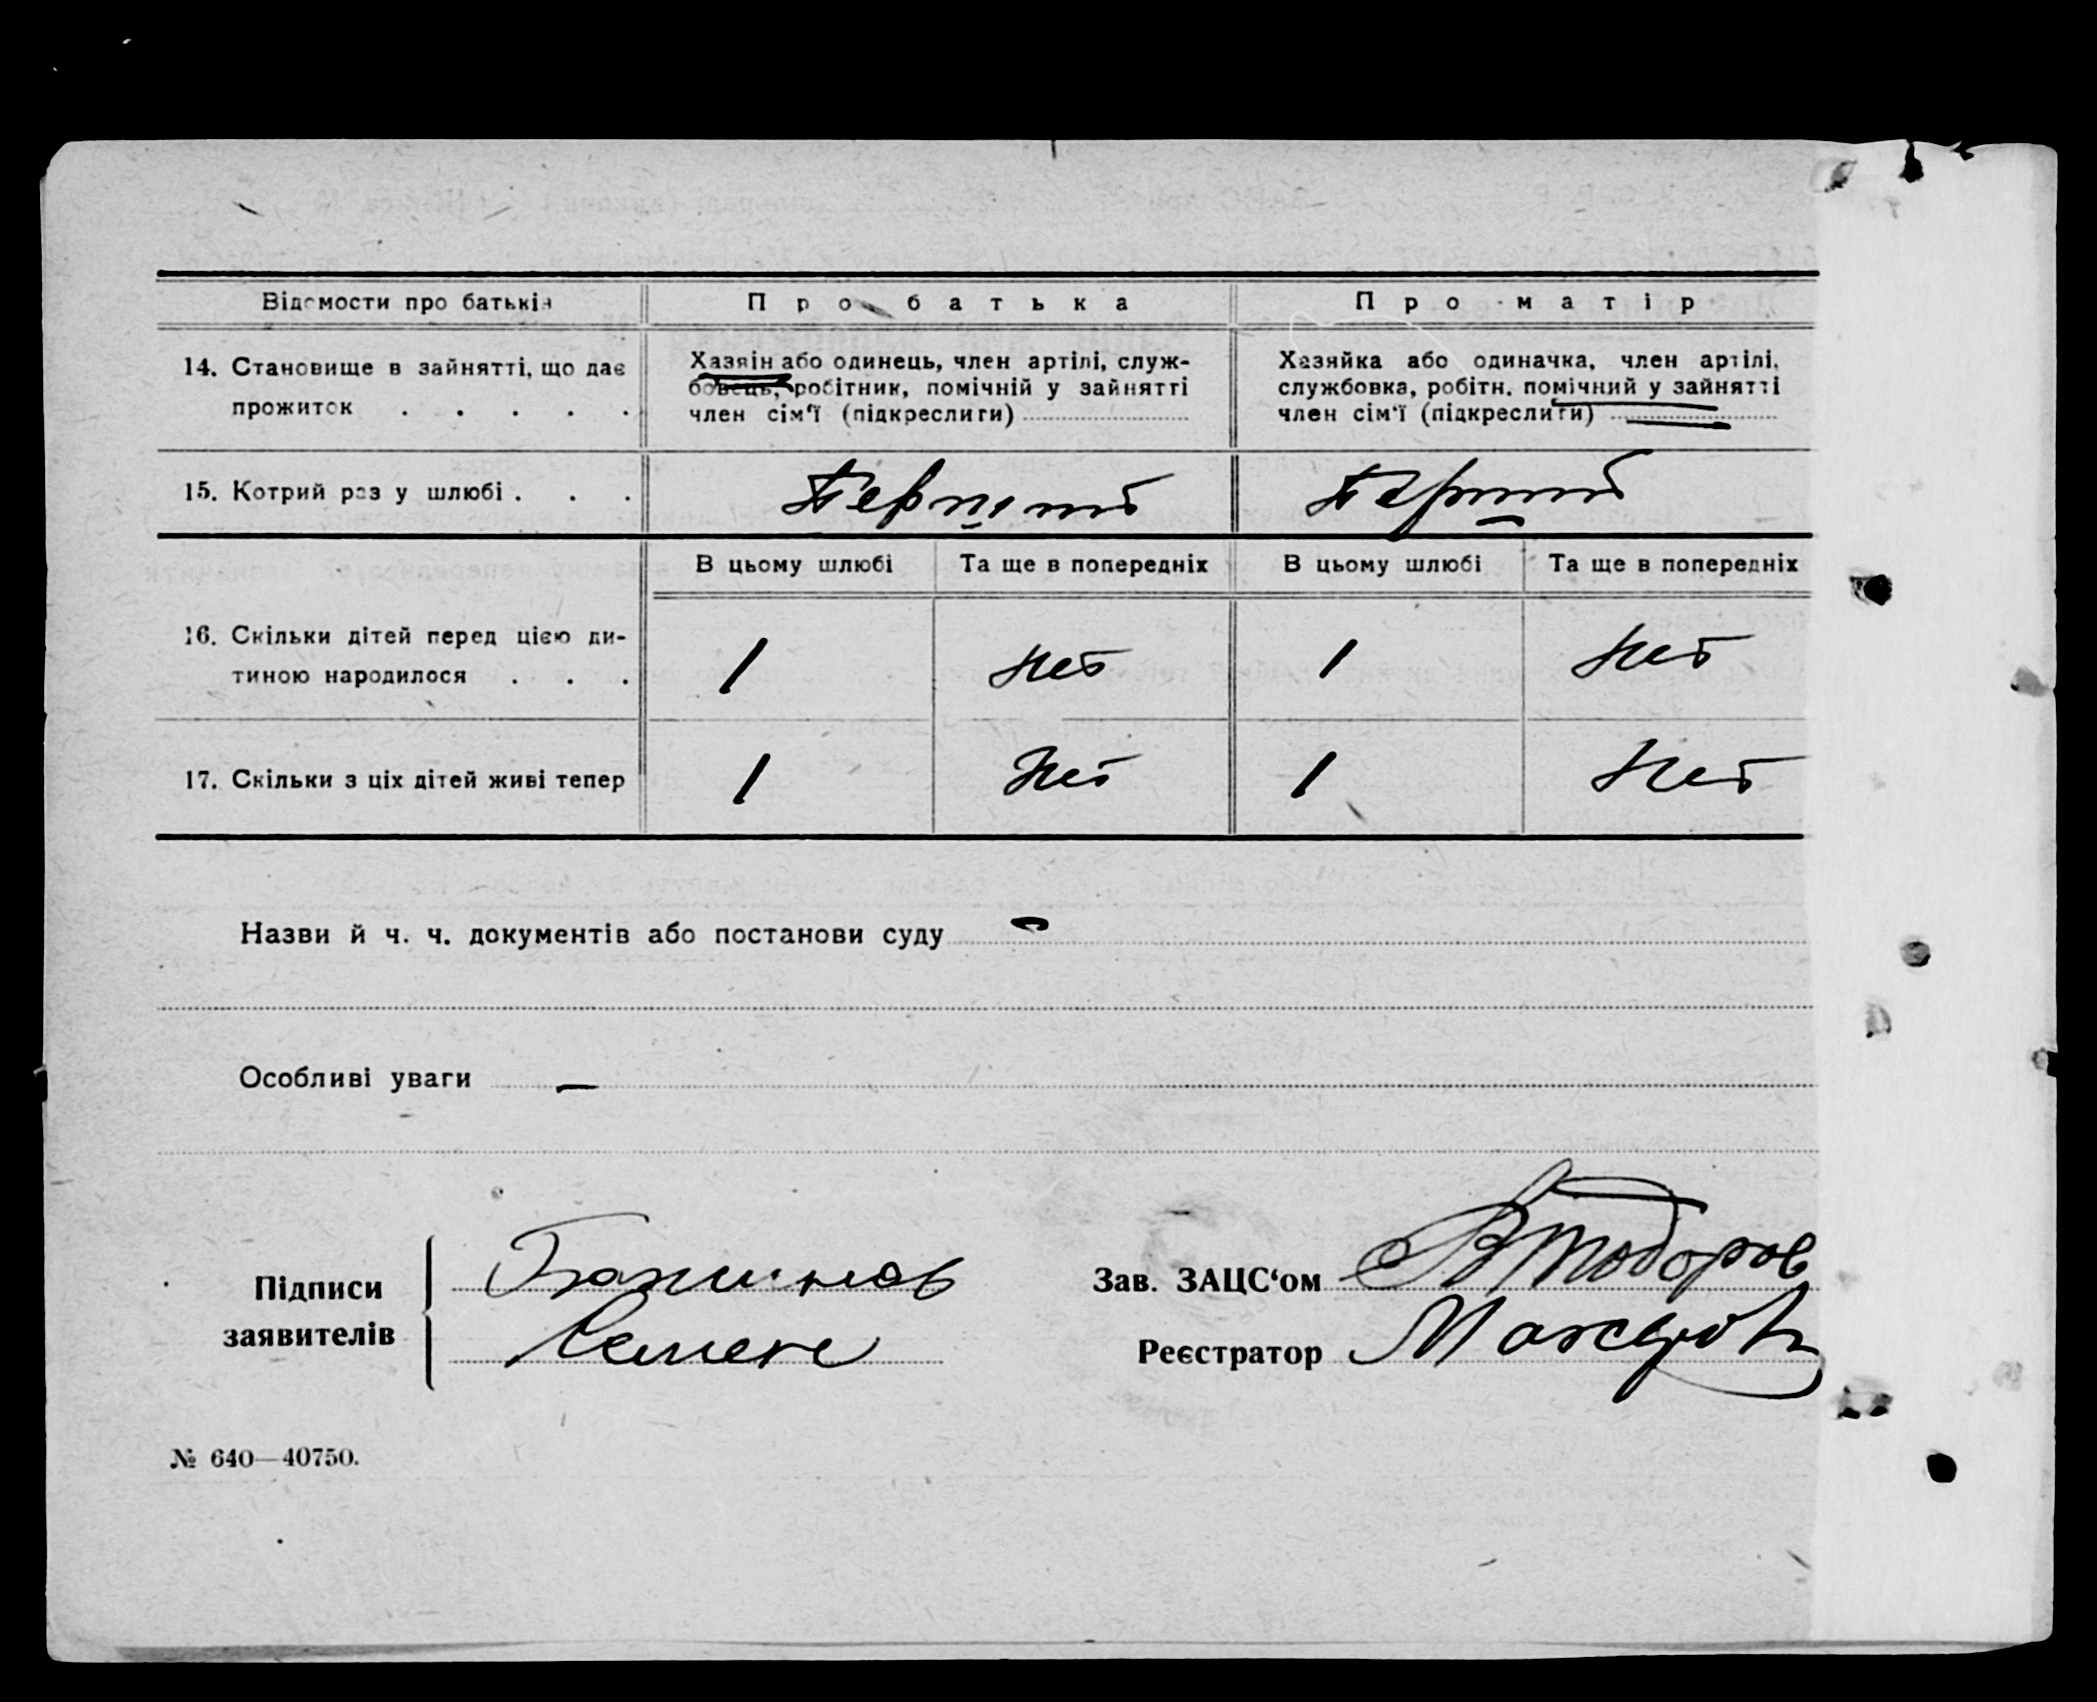 Відомости про батьків
Про батька
Про матір
14. Становище в зайнятті, що дає
прожиток . . . . .
Хазяін або одинець, член артілі, служ-
бовець, робітник, помічній у зайнятті
член сім'ї (підкреслиги)
Хазяйка або одиначка, член артілі,
службовка, робітн. помічний у зайнятті
член сім'ї (підкреслити)
15. Котрий раз у шлюбі . . .
Перший
Перший
В цьому шлюбі
Та ще в попередніх
В цьому шлюбі
Та ще в попередніх
16. Скільки дітей перед цією ди-
тиною народилося . . .
1
Нет
1
Нет
17. Скільки з ціх дітей живі тепер
1
Нет
1
Нет
Назви й ч. ч. документів або постанови суду —
Особливі уваги —
Підписи
заявителів
Семен
Зав. ЗАЦС'ом
Реєстратор
№ 640—40750.